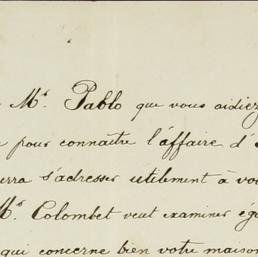 Mr. Pablo que vous aidiez
pour connaître l'affaire d'
urra s'adresser utilement à vo
Mr. Colombet veut examiner ég
qui concerne bien votre maison